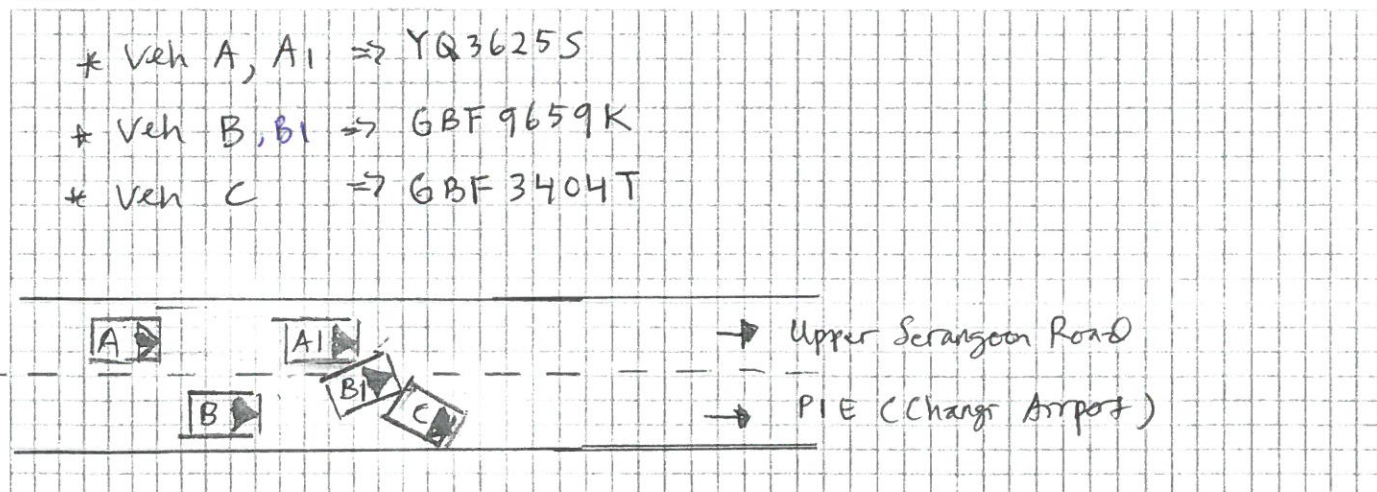 * Veh A, A1 => YQ3625S
* Veh B, B1 => GBF 9659K
* Veh C => GBF 3404T
A A1 → Upper Serangoon Road
B1
B C → PIE (Changi Airport)